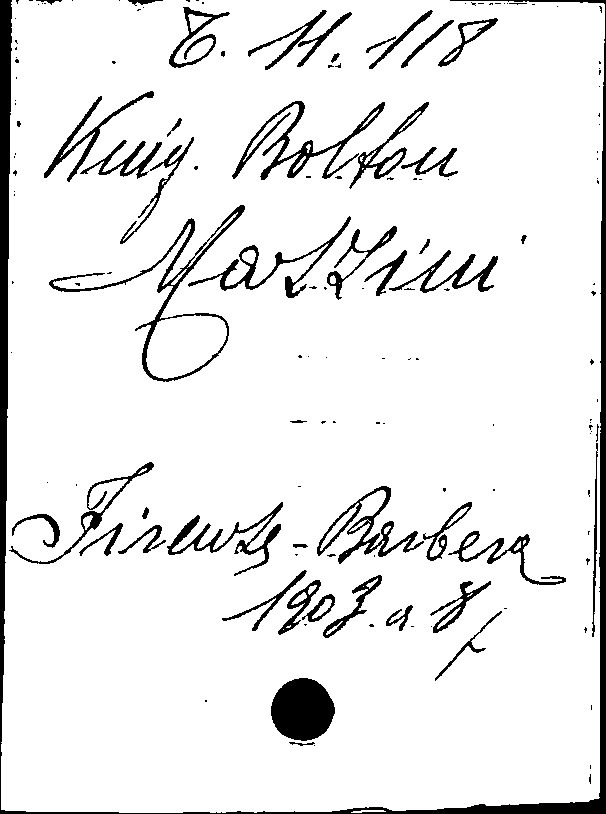 E. H. 118
King. Bolton
Mazzini
Firenze - Barbera
1903. a. 8/